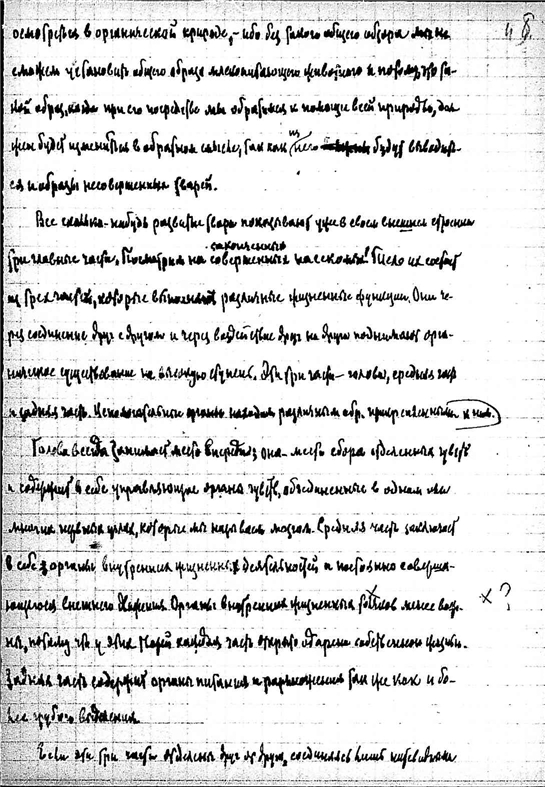 осмотреться в органической природе, – ибо без такого общего обзора мы не
сможем установить общего образа млекопитающего животного и потому, что та-
кой образ, когда при его посредстве мы обратимся к помощи всей природы, дол-
жен будет измениться в обратном смысле, так как из него будут выводить-
ся и образы несовершенных тварей.
Все сколько-нибудь развитые твари показывают уже в своем внешнем строении
три главные части. Посмотрим на законченных совершенных насекомых! Тело их состоит
из трех частей, которые выполняют различные жизненные функции. Они че-
рез соединение друг с другом и через воздействие друг на друга поднимают орга-
ническое существование на высокую ступень. Эти три части – голова, средняя часть
и задняя часть. Вспомогательные органы находим различным обр. прикрепленными к ним.
Голова всегда занимает место впереди; она – место сбора отделенных чувств
и содержит в себе управляющие органы чувств, объединенные в одном или
многих нервных узлах, которые мы называем мозгом. Средняя часть заключает
в себе органы внутренних жизненных деятельностей и постоянно соверша-
ющегося внешнего движения. Органы внутренних жизненных менее важ-
ны, потому что у этих тварей каждая часть открыто одарена собственною жизнью.
Задняя часть содержит органы питания и размножения так же как и бо-
лее грубого выделения.
Если эти три части отделены друг от друга, соединяясь лишь нитевидными
× ?